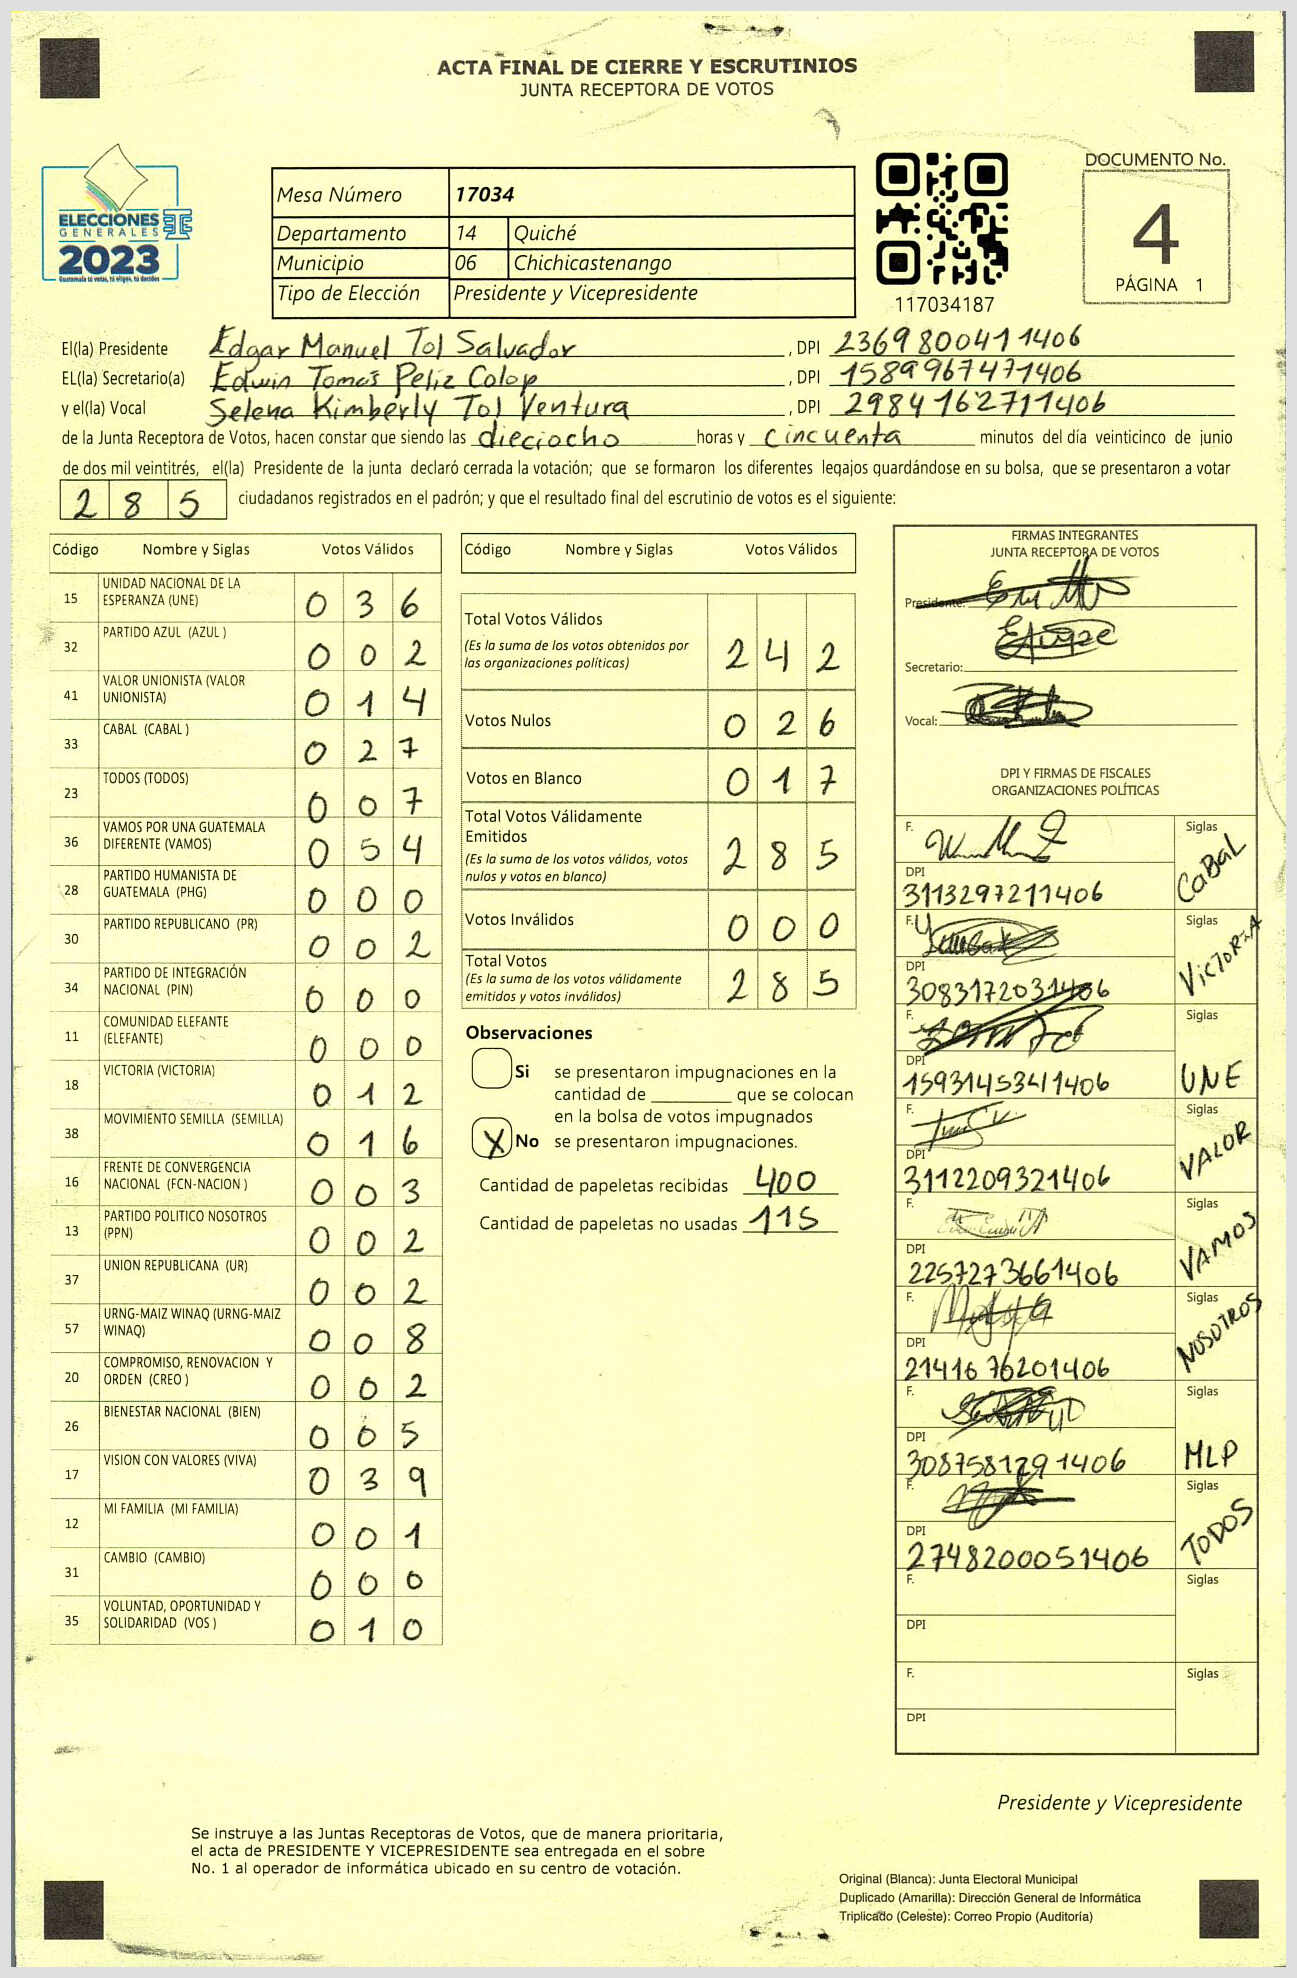 ACTA FINAL DE CIERRE Y ESCRUTINIOS
JUNTA RECEPTORA DE VOTOS
ELECCIONES
GENERALES
2023
Guatemala tú votas, tú eliges, tú decides
Mesa Número 17034
Departamento 14 Quiché
Municipio 06 Chichicastenango
Tipo de Elección Presidente y Vicepresidente
117034187
DOCUMENTO No.
4
PÁGINA 1
El(la) Presidente Edgar Manuel Tol Salvador, DPI 2369800411406
EL(la) Secretario(a) Edwin Tomás Peliz Colop, DPI 1589967471406
y el(la) Vocal Selena Kimberly Tol Ventura, DPI 2984162711406
de la Junta Receptora de Votos, hacen constar que siendo las dieciocho horas y cincuenta minutos del día veinticinco de junio
de dos mil veintitrés, el(la) Presidente de la junta declaró cerrada la votación; que se formaron los diferentes legajos guardándose en su bolsa, que se presentaron a votar
285 ciudadanos registrados en el padrón; y que el resultado final del escrutinio de votos es el siguiente:
Código Nombre y Siglas Votos Válidos
15 UNIDAD NACIONAL DE LA ESPERANZA (UNE) 036
32 PARTIDO AZUL (AZUL ) 002
41 VALOR UNIONISTA (VALOR UNIONISTA) 014
33 CABAL (CABAL ) 027
23 TODOS (TODOS) 007
36 VAMOS POR UNA GUATEMALA DIFERENTE (VAMOS) 054
28 PARTIDO HUMANISTA DE GUATEMALA (PHG) 000
30 PARTIDO REPUBLICANO (PR) 002
34 PARTIDO DE INTEGRACIÓN NACIONAL (PIN) 000
11 COMUNIDAD ELEFANTE (ELEFANTE) 000
18 VICTORIA (VICTORIA) 012
38 MOVIMIENTO SEMILLA (SEMILLA) 016
16 FRENTE DE CONVERGENCIA NACIONAL (FCN-NACION ) 003
13 PARTIDO POLITICO NOSOTROS (PPN) 002
37 UNION REPUBLICANA (UR) 002
57 URNG-MAIZ WINAQ (URNG-MAIZ WINAQ) 008
20 COMPROMISO, RENOVACION Y ORDEN (CREO ) 002
26 BIENESTAR NACIONAL (BIEN) 005
17 VISION CON VALORES (VIVA) 039
12 MI FAMILIA (MI FAMILIA) 001
31 CAMBIO (CAMBIO) 000
35 VOLUNTAD, OPORTUNIDAD Y SOLIDARIDAD (VOS ) 010
Código Nombre y Siglas Votos Válidos
Total Votos Válidos 242
(Es la suma de los votos obtenidos por
las organizaciones políticas)
Votos Nulos 026
Votos en Blanco 017
Total Votos Válidamente
Emitidos 285
(Es la suma de los votos válidos, votos
nulos y votos en blanco)
Votos Inválidos 000
Total Votos 285
(Es la suma de los votos válidamente
emitidos y votos inválidos)
Observaciones
Si se presentaron impugnaciones en la
cantidad de ________ que se colocan
en la bolsa de votos impugnados
X No se presentaron impugnaciones.
Cantidad de papeletas recibidas 400
Cantidad de papeletas no usadas 115
FIRMAS INTEGRANTES
JUNTA RECEPTORA DE VOTOS
Presidente:
Secretario:
Vocal:
DPI Y FIRMAS DE FISCALES
ORGANIZACIONES POLÍTICAS
F. Siglas CABAL
DPI 3113297211406
F. Siglas VICTORIA
DPI 3083172031406
F. Siglas UNE
DPI 1593145341406
F. Siglas VALOR
DPI 3112209321406
F. Siglas VAMOS
DPI 2257273661406
F. Siglas NOSOTROS
DPI 2141676201406
F. Siglas MLP
DPI 3087581291406
F. Siglas TODOS
DPI 2748200051406
F. Siglas
DPI
F. Siglas
DPI
Presidente y Vicepresidente
Se instruye a las Juntas Receptoras de Votos, que de manera prioritaria,
el acta de PRESIDENTE Y VICEPRESIDENTE sea entregada en el sobre
No. 1 al operador de informática ubicado en su centro de votación.
Original (Blanca): Junta Electoral Municipal
Duplicado (Amarilla): Dirección General de Informática
Triplicado (Celeste): Correo Propio (Auditoría)